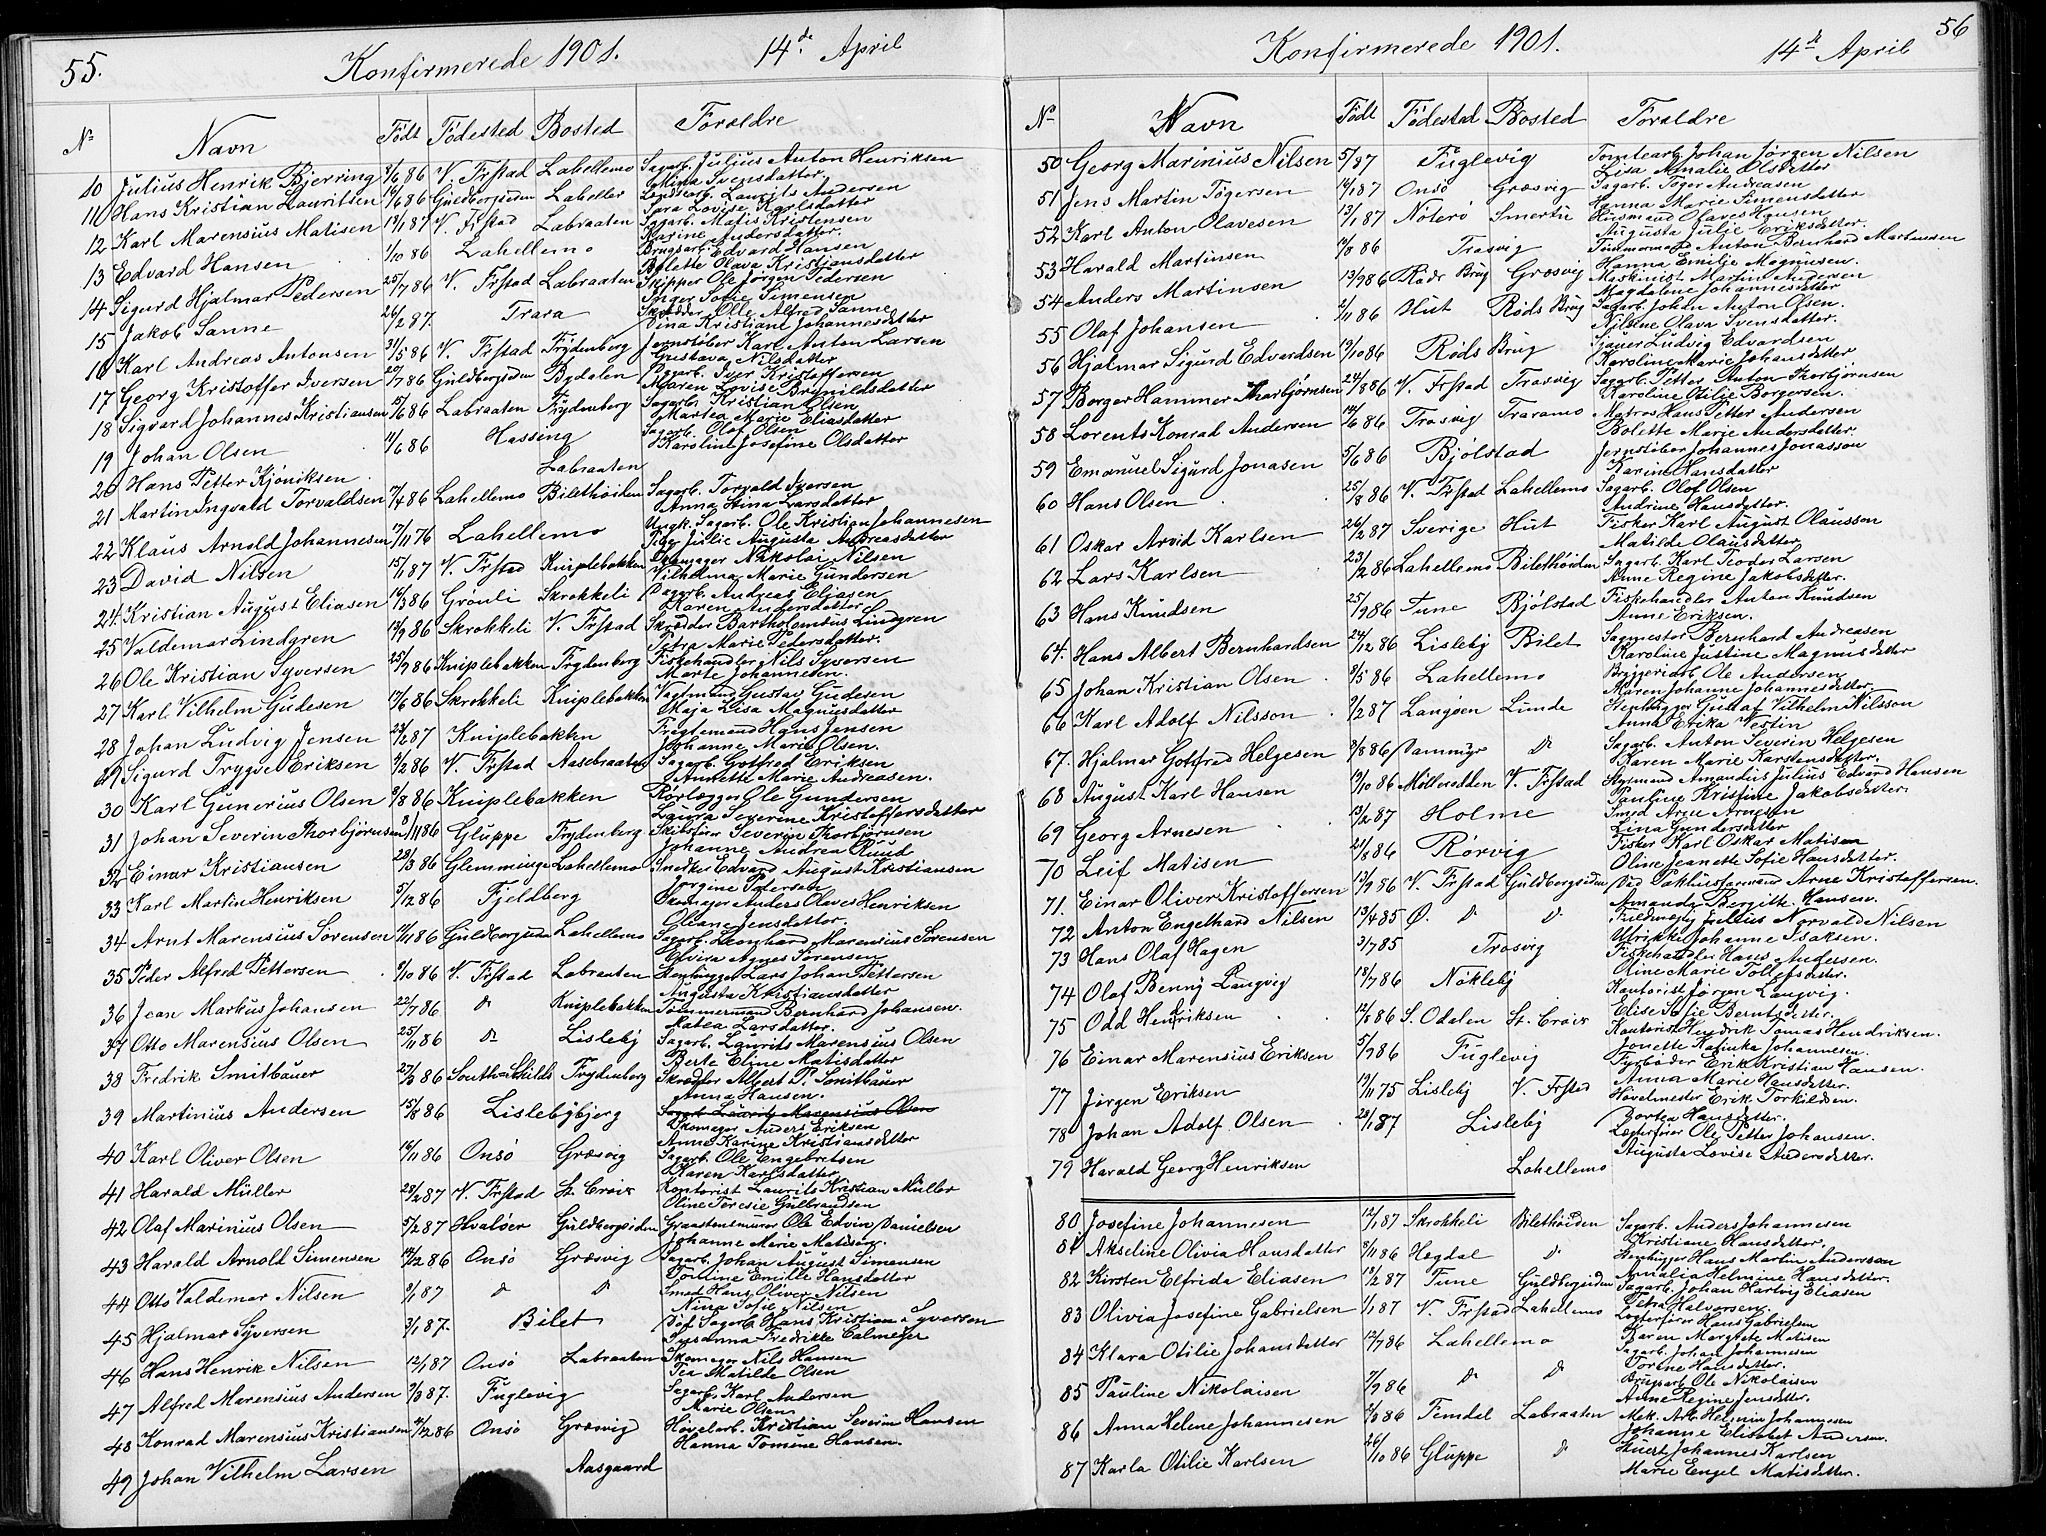 55.
Konfirmerede 1901.
14de April
No Navn Födt Födested Bosted Forældre
10 Julius Henrik Bjerring 9/6 86 V. Frstad Lahellemo Sagarb. Julius Anton Henriksen
Mina Svensdatter.
11 Hans Kristian Lauritsen 86 Guldbergsiden Laheller Laurits Andersen
Sara Lovise Karlsdatter
12 Karl Marensius Matisen 87 V. Frstad Labraaten Sagarb. Matis Kristensen
Karine Andersdatter.
13 Edvard Hansen 1/10 86 Lahellemo Brugsarb. Edvard Hansen
Bolette Olava Kristiansdatter
14 Sigurd Hjalmar Pedersen 25/7 86 V. Frstad Labraaten Skipper Ole Jörgen Pedersen
Inger Sofie Simensen
15 Jakob Sanne 26/2 87. Trara Skræder Olle Alfred Sanne
Dina Kristiane Johannesdatter
16 Karl Andreas Antonsen 31/5 86 V. Frstad Frydenberg Jernstöber Karl Anton Larsen
Gustava Nilsdatter
17 Georg Kristoffer Iversen 20/7 86 Guldbergsiden Bydalen Sagarb. Iver Kristoffersen
Maren Lovise Brynildsdatter
18 Sigvard Johannes Kristiansen 15/6 86 Labraaten Frydenberg Sagarb. Kristian Olsen
Martea Marie Eliasdatter
19 Johan Olsen 11/6 86 Hasseng Sagarb. Olaf Olsen
Karoline Josefine Olsdatter
20 Hans Petter Kjöniksen Labraaten
21 Martin Ingvald Torvaldsen 7/4 86 Lahellemo Bilethöiden Sagarb. Torvald Iversen
Anna Stina Larsdatter
22 Klaus Arnold Johannesen 17/11 76 Lahellemo Ungk. Sagarb. Ole Kristian Johannesen
Pige Julie Augusta Andreasdatter
23 David Nilsen 15/1 87 V. Frstad Kniplebakken Skomager Nikolai Nilsen
Vilhelma Marie Gundersen
24. Kristian August Eliasen 14/3 86 Grönli Skrokkeli Sagarb. Andreas Eliasen
Karen Andersdatter
25 Valdemar Lindgren 19/9 86 Skrokkeli V. Frstad Skræder Bartholomæus Lindgren
Petra Marie Pedersdatter.
26 Ole Kristian Syversen 25/9 86 Kniplebakken Frydenberg Fiskehandler Nils Syversen
Marte Johannesen.
27 Karl Vilhelm Gudesen 17/6 86 Skrokkeli Kniplebakken Vagtmand Gustav Gudesen
Maja Lisa Magnusdatter
28 Johan Ludvig Jensen 23/2 87 Kniplebakken Frugtemand Hans Jensen
Johanne Marie Olsen.
29 Sigurd Trygve Eriksen 9/2 86 V. Frstad Aasebraaten Sagarb. Gotfred Eriksen
Annette Marie Andreasen.
30 Karl Gunerius Olsen 8/8 86 Kniplebakken Rörlægger Ole Gundersen
Laura Severine Kristoffersdatter
31 Johan Severin Thorbjörnsen 8/11 86 Gluppe Frydenberg Skibsförer Severin Thorbjörnsen
Johanne Andrea Ruud
32 Einar Kristiansen 23/3 86 Glemminge Lahellemo Snedker Edvard August Kristiansen
Jorgine Petersen
33 Karl Martin Henriksen 5/12 86 Fjeldberg Skomager Anders Olves Henriksen
Oleane Jensdatter.
34 Arnt Marensius Sörensen 7/11 86 Guldbergsiden Lahellemo Sagarb. Leonhard Marensius Sörensen
Elvira Agnes Sörensen
35 Peder Alfred Pettersen 9/10 86 V. Frstad Labraaten Stenhugger Lars Johan Pettersen
Augusta Kristiansdatter
36 Jean Markus Johansen 22/7 86 do Kniplebakken Tömmermand Bernhard Johansen.
Matea Larsdatter.
37 Otto Marensius Olsen 25/11 86 do Lisleby Sagarb. Laurits Marensius Olsen
Berte Eline Matisdatter
38 Fredrik Smitbauer 27/3 86 South-Shilds Frydenborg Skræder Albert P. Smitbauer
Anna Hansen.
39 Martinius Andersen 15/8 86 Lislebybjerg Sagarb. Laurits Marensius Olsen
Skomager Anders Eriksen
Anne Karine Kristiansdatter
40 Karl Oliver Olsen 16/11 86 Onsö Græsvig Sagarb. Ole Engebretsen
Karen Karlsdatter
41 Harald Müller 28/2 87 V. Frstad St. Croix Kontorist Laurits Kristian Müller
Oline Teresie Gulbrandsen
42 Olaf Marinius Olsen 5/2 87 Hvalöer Guldbergsiden Graastensmurer Ole Edvin Danielsen
Johanne Marie Matisen.
43 Harald Arnold Simensen 14/12 86 Onsö Græsvig Sagarb. Johan August Simensen
Tomine Emilie Hansdatter
44 Otto Valdemar Nilsen 3/1 87 do do Smed Hans Oliver Nilsen
Nina Sofie Nilsen
45 Hjalmar Syversen 3/1 87. Bilet Döf. Sagarb. Hans Kristian Syversen
Susanna Fredrikke Calmeyer
46 Hans Henrik Nilsen 12/1 87 Onsö Labraaten Skomager Nils Hansen
Tea Matilde Olsen
47 Alfred Marensius Andersen 9/3 87. Fuglevig Sagarb. Karl Andersen
Marie Olsen
48 Konrad Marensius Kristiansen 4/12 86 Onsö Græsvig Hövelarb. Kristian Severin Hansen
Hanna Tomene Hansen.
49 Johan Vilhelm Larsen Aasgaard
56
Konfirmerede 1901.
14de April
No Navn Födt Födested Bosted Forældre
50 Georg Marinius Nilsen 5/1 87 Fuglevig Tomtearb. Johan Jörgen Nilsen
Lisa Amalie Olsdatter
51 Jens Martin Tögersen 14/1 87 Onsö Græsvig Sagarb. Töger Andreasen
Hanna Marie Simensdatter
52 Karl Anton Olavesen 13/1 87 Nöterö Smertu Husmand Olaves Hansen
Augusta Julie Eriksdatter.
53 Harald Martinsen 86 Trosvig Tömmermand Anton Bernhard Martinsen
Hanna Emilie Magnusen.
54 Anders Martinsen 13/9 86 Röds Brug Græsvig Maskinist Martin Andersen
Magdalene Johannesdatter
55 Olaf Johansen 2/11 86 Hut Röds Brug Sagarb. Johan Anton Olsen.
Nilsine Olava Svensdatter.
56 Hjalmar Sigurd Edvardsen 19/10 86 Röds Brug Sjauer Ludvig Edvardsen
Karoline Marie Johansdatter
57 Borger Hammer Thorbjörnsen 24/8 86 V. Frstad Trosvig Sagarb. Petter Anton Thorbjörnsen
Karoline Otilie Borgersen.
58 Lorents Konrad Andersen 14/6 86 Trosvig Traramo Matros Hans Petter Andersen
Bolette Marie Andersdatter.
59 Emanuel Sigurd Jonasen 5/6 86 Bjölstad Jernstöber Johannes Jonasson
Karin Hansdatter
60 Hans Olsen 25/8 86 V. Frstad Lahellemo Sagarb. Olof Olsen
Andrine Hansdatter.
61 Oskar Arvid Karlsen 26/2 87 Sverige Hut Fisker Karl August Olausson
Matilde Olausdatter.
62 Lars Karlsen 23/12 86 Lahellemo Bilethöiden Sagarb. Karl Teodor Larsen
Anne Regine Jakobsdatter.
63 Hans Knudsen 25/9 86 Tune Bjölstad Fiskehandler Anton Knudsen
Anne Eriksen.
64. Hans Albert Bernhardsen 24/12 86 Lisleby Bilet Sagmester Bernhard Andreasen
Karoline Justine Magnusdatter
65 Johan Kristian Olsen 8/5 86 Lahellemo Bryggeriarb. Ole Andersen
Maren Johanne Johannesdatter
66 Karl Adolf Nilsson 7/2 87 Langöen Lunde Stenhugger Gustaf Vilhelm Nilsson
Anna Erika Vestin
67. Hjalmar Gotfred Helgesen 9/8 86 Dammyr do Sagarb. Anton Severin Helgesen
Karen Marie Karstensdatter.
68 August Karl Hansen 19/10 86 Möllerodden V. Frstad Styrmand Amandus Julius Edvard Hansen
Pauline Kristine Jakobsdatter.
69 Georg Arnesen 13/2 87 Holme Smed Arne Arnesen
Lina Gundersdatter
70 Leif Matisen 21/8 86 Rörvig Fisker Karl Oskar Matisen
Oline Jeanette Sofie Hansdatter.
71. Einar Oliver Kristoffersen 13/9 86 V. Frstad Guldbergsiden Död Pakhusformand Arne Kristoffersen.
Amanda Bergitte Hansen.
72 Anton Engelhard Nilsen 13/4 85 Ö. do do Julius Norvald Nilsen
Ulrikke Johanne Isaksen.
73 Hans Olaf Hagen 31/7 85 Trosvig Fiskehandler Hans Andersen.
Oline Marie Tollefsdatter.
74 Olaf Benny Langvig 18/7 86 Nökleby Kontorist Jörgen Langvig.
Elise Sofie Berntsdatter.
75 Odd Henriksen 12/8 86 S. Odalen St. Croix Kontorist Hendrik Tomas Hendriksen.
Jonette Katinka Johannesen.
76 Einar Marensius Eriksen 5/7 86 Fuglevig Fyrböder Erik Kristian Hansen.
Anna Marie Hansdatter.
77 Jörgen Eriksen 19/11 75 Lisleby V. Frstad Hövelmester Erik Torkildsen.
Dortea Hansdatter.
78 Johan Adolf Olsen 28/1 87 Lisleby Lægterförer Ole Petter Johansen.
Augusta Lovise Andersdatter.
79 Harald Georg Henriksen Lahellemo
80 Josefine Johannesen 12/1 87 Skrokkeli Bilethöiden Sagarb. Anders Johannesen
Kristiane Hansdatter.
81 Akseline Olivia Hansdatter 8/11 86 Hegdal do Stenhugger Hans Martin Andersson
Amalia Helmine Hansdatter.
82 Kirsten Elfrida Eliasen 13/2 87 Tune Guldbergsiden Sagarb. Johan Hartvig Eliasen
Petra Halvorsen.
83 Olivia Josefine Gabrielsen 1/1 87 V. Frstad Lahellemo Lægterförer Hans Gabrielsen
Karen Margrete Matisen
84 Klara Otilie Johansdatter 12/7 86 Lahellemo Sagarb. Johan Johannesen
Torine Hansdatter.
85 Pauline Nikolaisen 7/9 86 do do Brugsarb. Ole Nikolaisen
Anne Regine Jensdatter.
86 Anna Helene Johannesen 86 Temdal Labraaten Mek. Arb. Helmin Johannesen
Johanne Elisabet Andersen.
87 Karla Otilie Karlsen 26/10 86 Gluppe do Stuert Johannes Karlsen
Marie Engel Matisdatter.